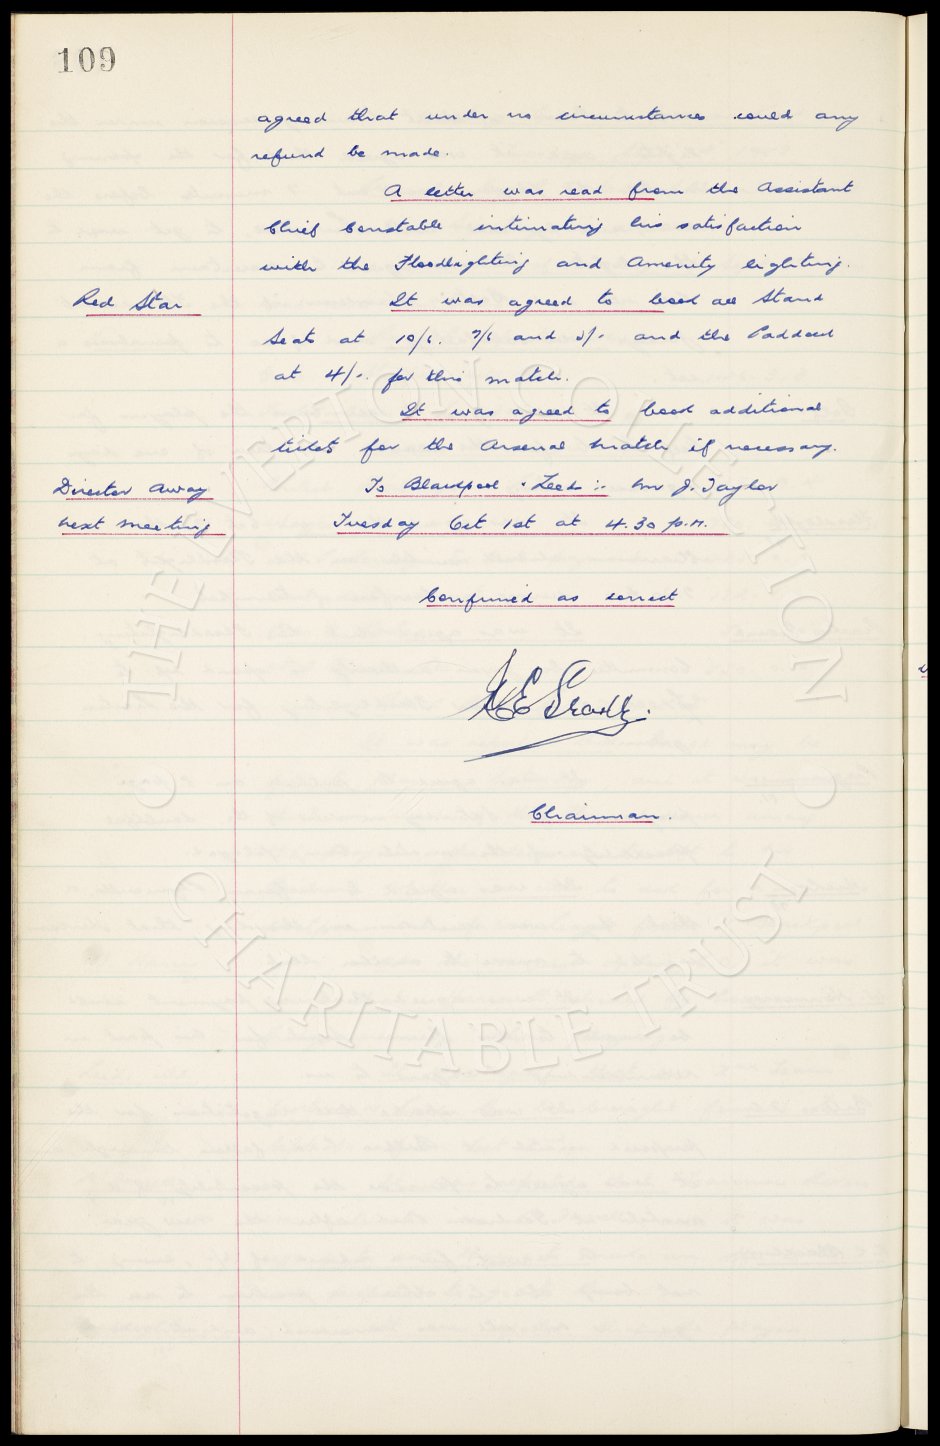 109
agreed that under no circumstances could any
refund be made.
A letter was read from the Assistant
Chief Constable intimating his satisfaction
with the Floodlighting and Amenity lighting.
Red Star It was agreed to book all Stand
Seats at 10/6. 7/6 and 5/- and the Paddock
at 4/-. for this match.
It was agreed to book additional
tickets for the Arsenal match if necessary.
Director Away To Blackpool & Leeds :- Mr J. Taylor
Next meeting Tuesday Oct 1st at 4.30 p.m.
Confirmed as correct
Chairman.
THE EVERTON COLLECTION
CHARITABLE TRUST